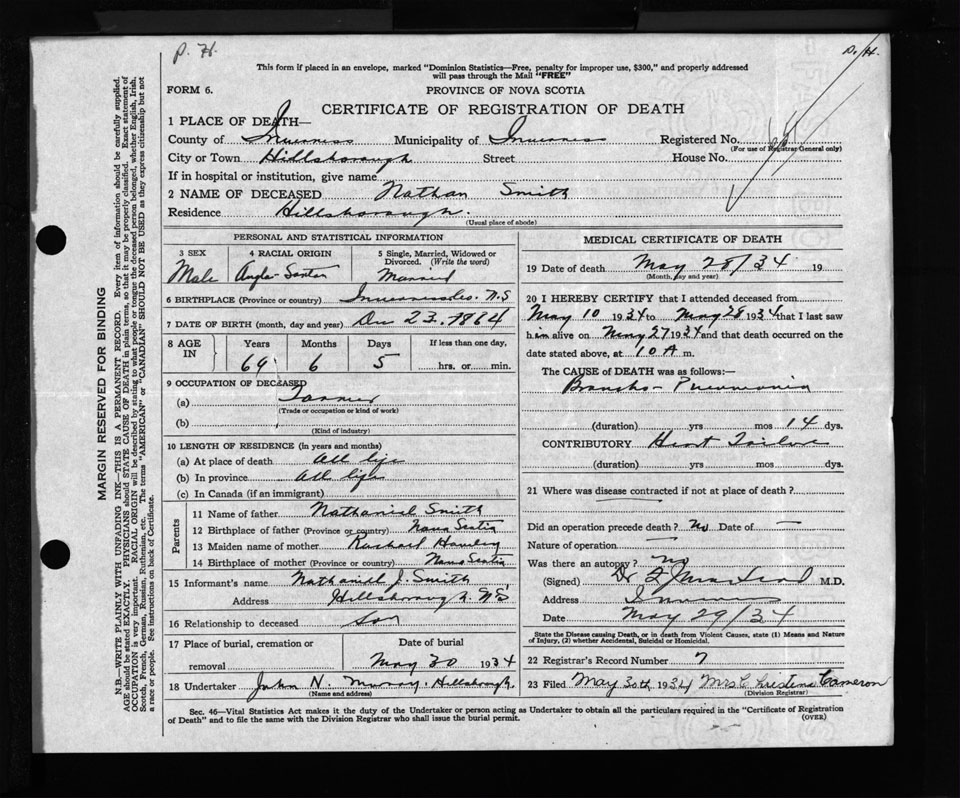 P. H.
D. H.
This form if placed in an envelope, marked "Dominion Statistics—Free, penalty for improper use, $300," and properly addressed
will pass through the Mail "FREE"
FORM 6.
PROVINCE OF NOVA SCOTIA
CERTIFICATE OF REGISTRATION OF DEATH
1 PLACE OF DEATH—
County of Inverness Municipality of Inverness Registered No.
(For use of Registrar General only)
City or Town Hillsborough Street House No.
If in hospital or institution, give name
2 NAME OF DECEASED Nathan Smith
Residence Hillsborough.
(Usual place of abode)
PERSONAL AND STATISTICAL INFORMATION
3 SEX Male
4 RACIAL ORIGIN Anglo-Saxon
5 Single, Married, Widowed or
Divorced. (Write the word)
Married
6 BIRTHPLACE (Province or country) Inverness Co. N.S
7 DATE OF BIRTH (month, day and year) Dec 23. 1864
8 AGE IN
Years Months Days If less than one day,
69 6 5 hrs. or min.
9 OCCUPATION OF DECEASED
(a) Farmer
(Trade or occupation or kind of work)
(b)
(Kind of industry)
10 LENGTH OF RESIDENCE (in years and months)
(a) At place of death All life
(b) In province All life
(c) In Canada (if an immigrant)
Parents
11 Name of father Nathaniel Smith
12 Birthplace of father (Province or country) Nova Scotia
13 Maiden name of mother Rachael
14 Birthplace of mother (Province or country) Nova Scotia
15 Informant's name Nathaniel J. Smith
Address Hillsborough. N.S
16 Relationship to deceased Son
17 Place of burial, cremation or
removal
Date of burial
May 30 1934
18 Undertaker John N. Murray. Hillsborough.
(Name and address)
MEDICAL CERTIFICATE OF DEATH
19 Date of death May 28/34 19
(Month, day and year)
20 I HEREBY CERTIFY that I attended deceased from
May 10 1934 to May 28 1934 that I last saw
h im alive on May 27 1934 and that death occurred on the
date stated above, at 10 A m.
The CAUSE of DEATH was as follows:—
Broncho-Pneumonia
(duration) yrs mos 14 dys.
CONTRIBUTORY Heart Failure
(duration) yrs mos dys.
21 Where was disease contracted if not at place of death?
Did an operation precede death? No Date of —
Nature of operation —
Was there an autopsy? No
(Signed) Dr M.D.
Address Inverness
Date May 29/34
State the Disease causing Death, or in death from Violent Causes, state (1) Means and Nature
of Injury, (2) whether Accidental, Suicidal or Homicidal.
22 Registrar's Record Number 7
23 Filed May 30th, 1934 Mrs C. Cameron
(Division Registrar)
Sec. 46—Vital Statistics Act makes it the duty of the Undertaker or person acting as Undertaker to obtain all the particulars required in the "Certificate of Registration
of Death" and to file the same with the Division Registrar who shall issue the burial permit. (OVER)
MARGIN RESERVED FOR BINDING
N.B.—WRITE PLAINLY WITH UNFADING INK—THIS IS A PERMANENT RECORD. Every item of information should be carefully supplied.
AGE should be stated EXACTLY. PHYSICIANS should STATE CAUSE OF DEATH in plain terms, so that it may be properly classified. Exact statement of
OCCUPATION is very important. RACIAL ORIGIN will be described by stating to what people or tongue the deceased person belonged, whether English, Irish,
Scotch, French, German, Russian, Ruthenian, etc. The terms "AMERICAN" or "CANADIAN" SHOULD NOT BE USED as they express citizenship but not
a race or people. See instructions on back of Certificate.